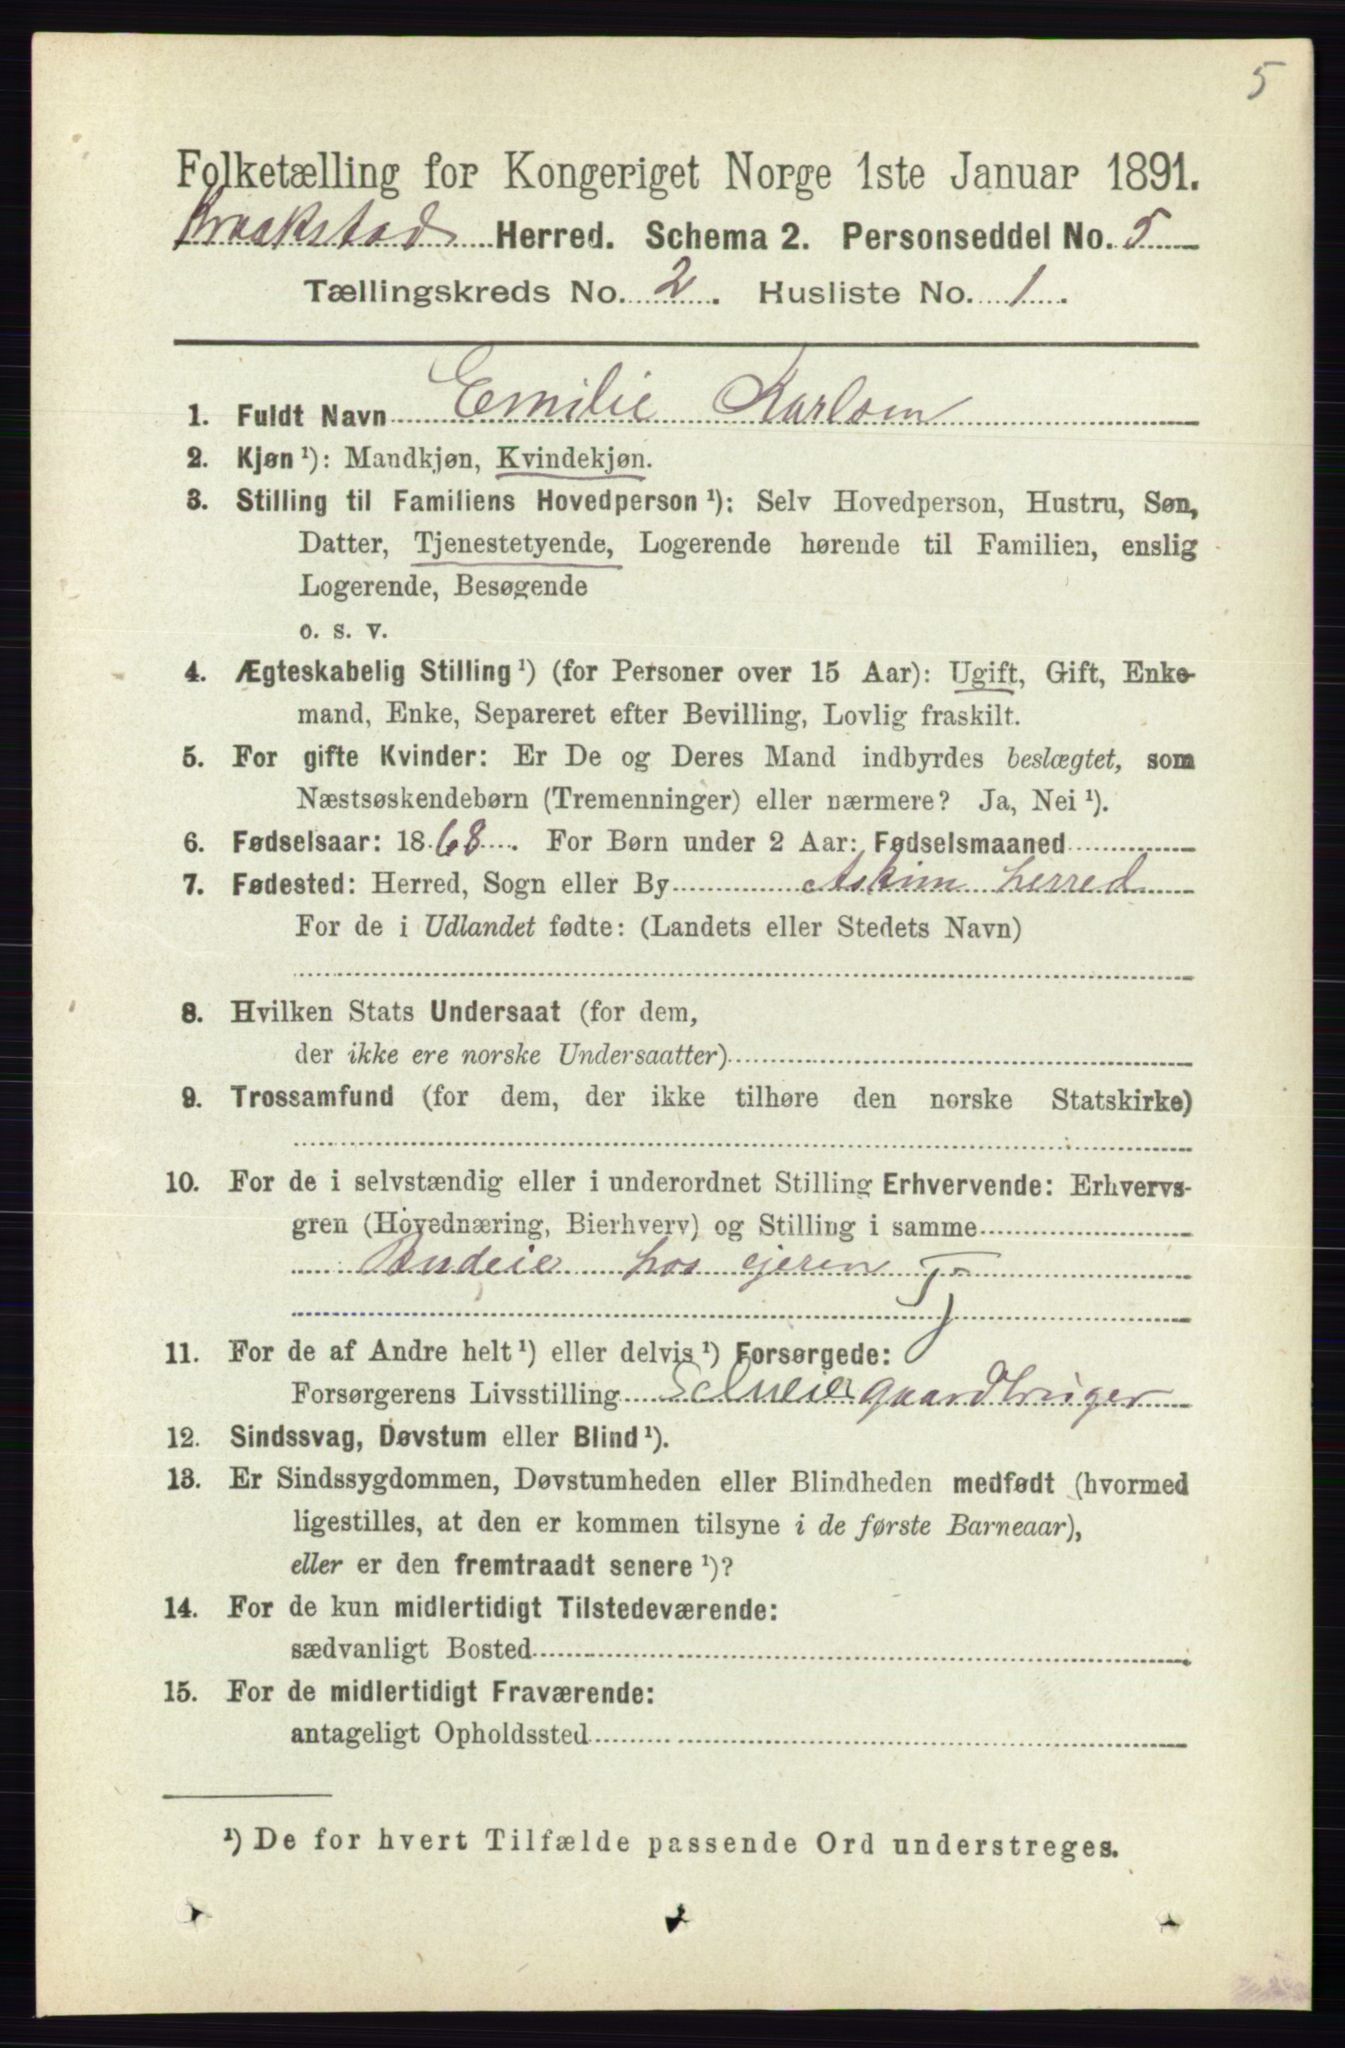 5
Folketælling for Kongeriget Norge 1ste Januar 1891.
Kraakstad Herred. Schema 2. Personseddel No. 5
Tællingskreds No. 2. Husliste No. 1.
1. Fuldt Navn Emilie Karlsen
2. Kjøn ¹): Mandkjøn, Kvindekjøn.
3. Stilling til Familiens Hovedperson ¹): Selv Hovedperson, Hustru, Søn,
Datter, Tjenestetyende, Logerende hørende til Familien, enslig
Logerende, Besøgende
o. s. v.
4. Ægteskabelig Stilling ¹) (for Personer over 15 Aar): Ugift, Gift, Enke-
mand, Enke, Separeret efter Bevilling, Lovlig fraskilt.
5. For gifte Kvinder: Er De og Deres Mand indbyrdes beslægtet, som
Næstsøskendebørn (Tremenninger) eller nærmere? Ja, Nei ¹).
6. Fødselsaar: 1868. For Børn under 2 Aar: Fødselsmaaned
7. Fødested: Herred, Sogn eller By Askim herred
For de i Udlandet fødte: (Landets eller Stedets Navn)
8. Hvilken Stats Undersaat (for dem,
der ikke ere norske Undersaatter)
9. Trossamfund (for dem, der ikke tilhøre den norske Statskirke)
10. For de i selvstændig eller i underordnet Stilling Erhvervende: Erhvervs-
gren (Hovednæring, Bierhverv) og Stilling i samme
Budeie hos ejeren
11. For de af Andre helt ¹) eller delvis ¹) Forsørgede:
Forsørgerens Livsstilling Selveier gaardbruger
12. Sindssvag, Døvstum eller Blind ¹).
13. Er Sindssygdommen, Døvstumheden eller Blindheden medfødt (hvormed
ligestilles, at den er kommen tilsyne i de første Barneaar),
eller er den fremtraadt senere ¹)?
14. For de kun midlertidigt Tilstedeværende:
sædvanligt Bosted
15. For de midlertidigt Fraværende:
antageligt Opholdssted
¹) De for hvert Tilfælde passende Ord understreges.